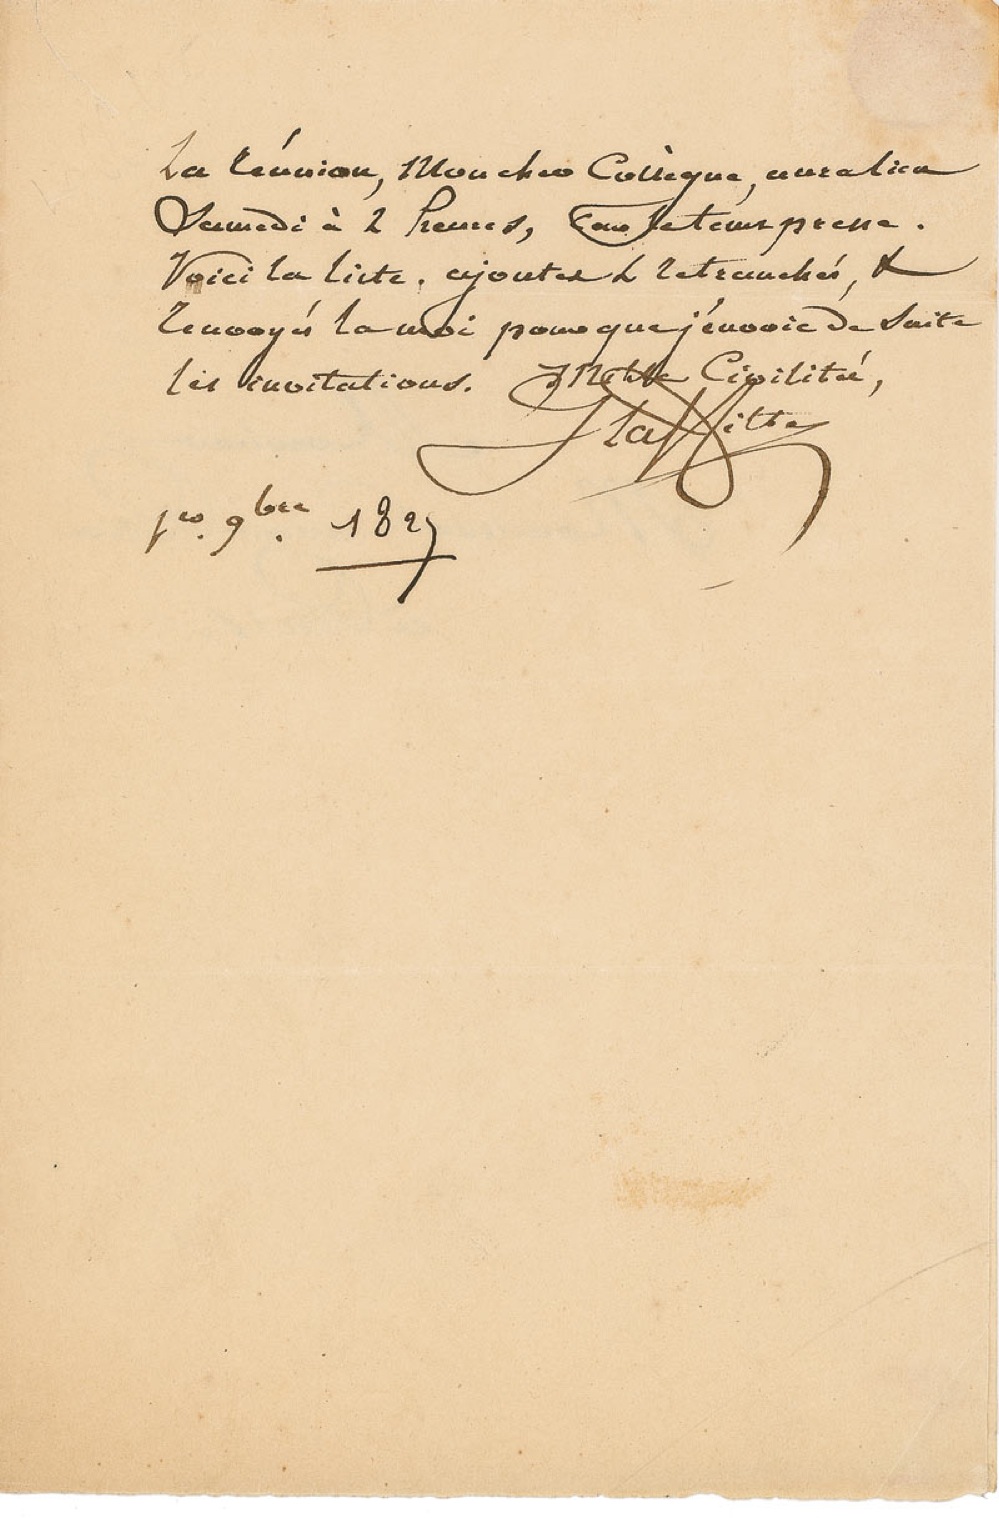 La réunion, Mon cher Collègue, aura lieu
Samedi à 2 heures, Car le tems presse.
Voici la liste. ajoutez & retranchés, &
renvoyés la moi pour que j'envoie de suite
les invitations. Mille Civilités,
J Laffitte
1er. 9bre. 1827